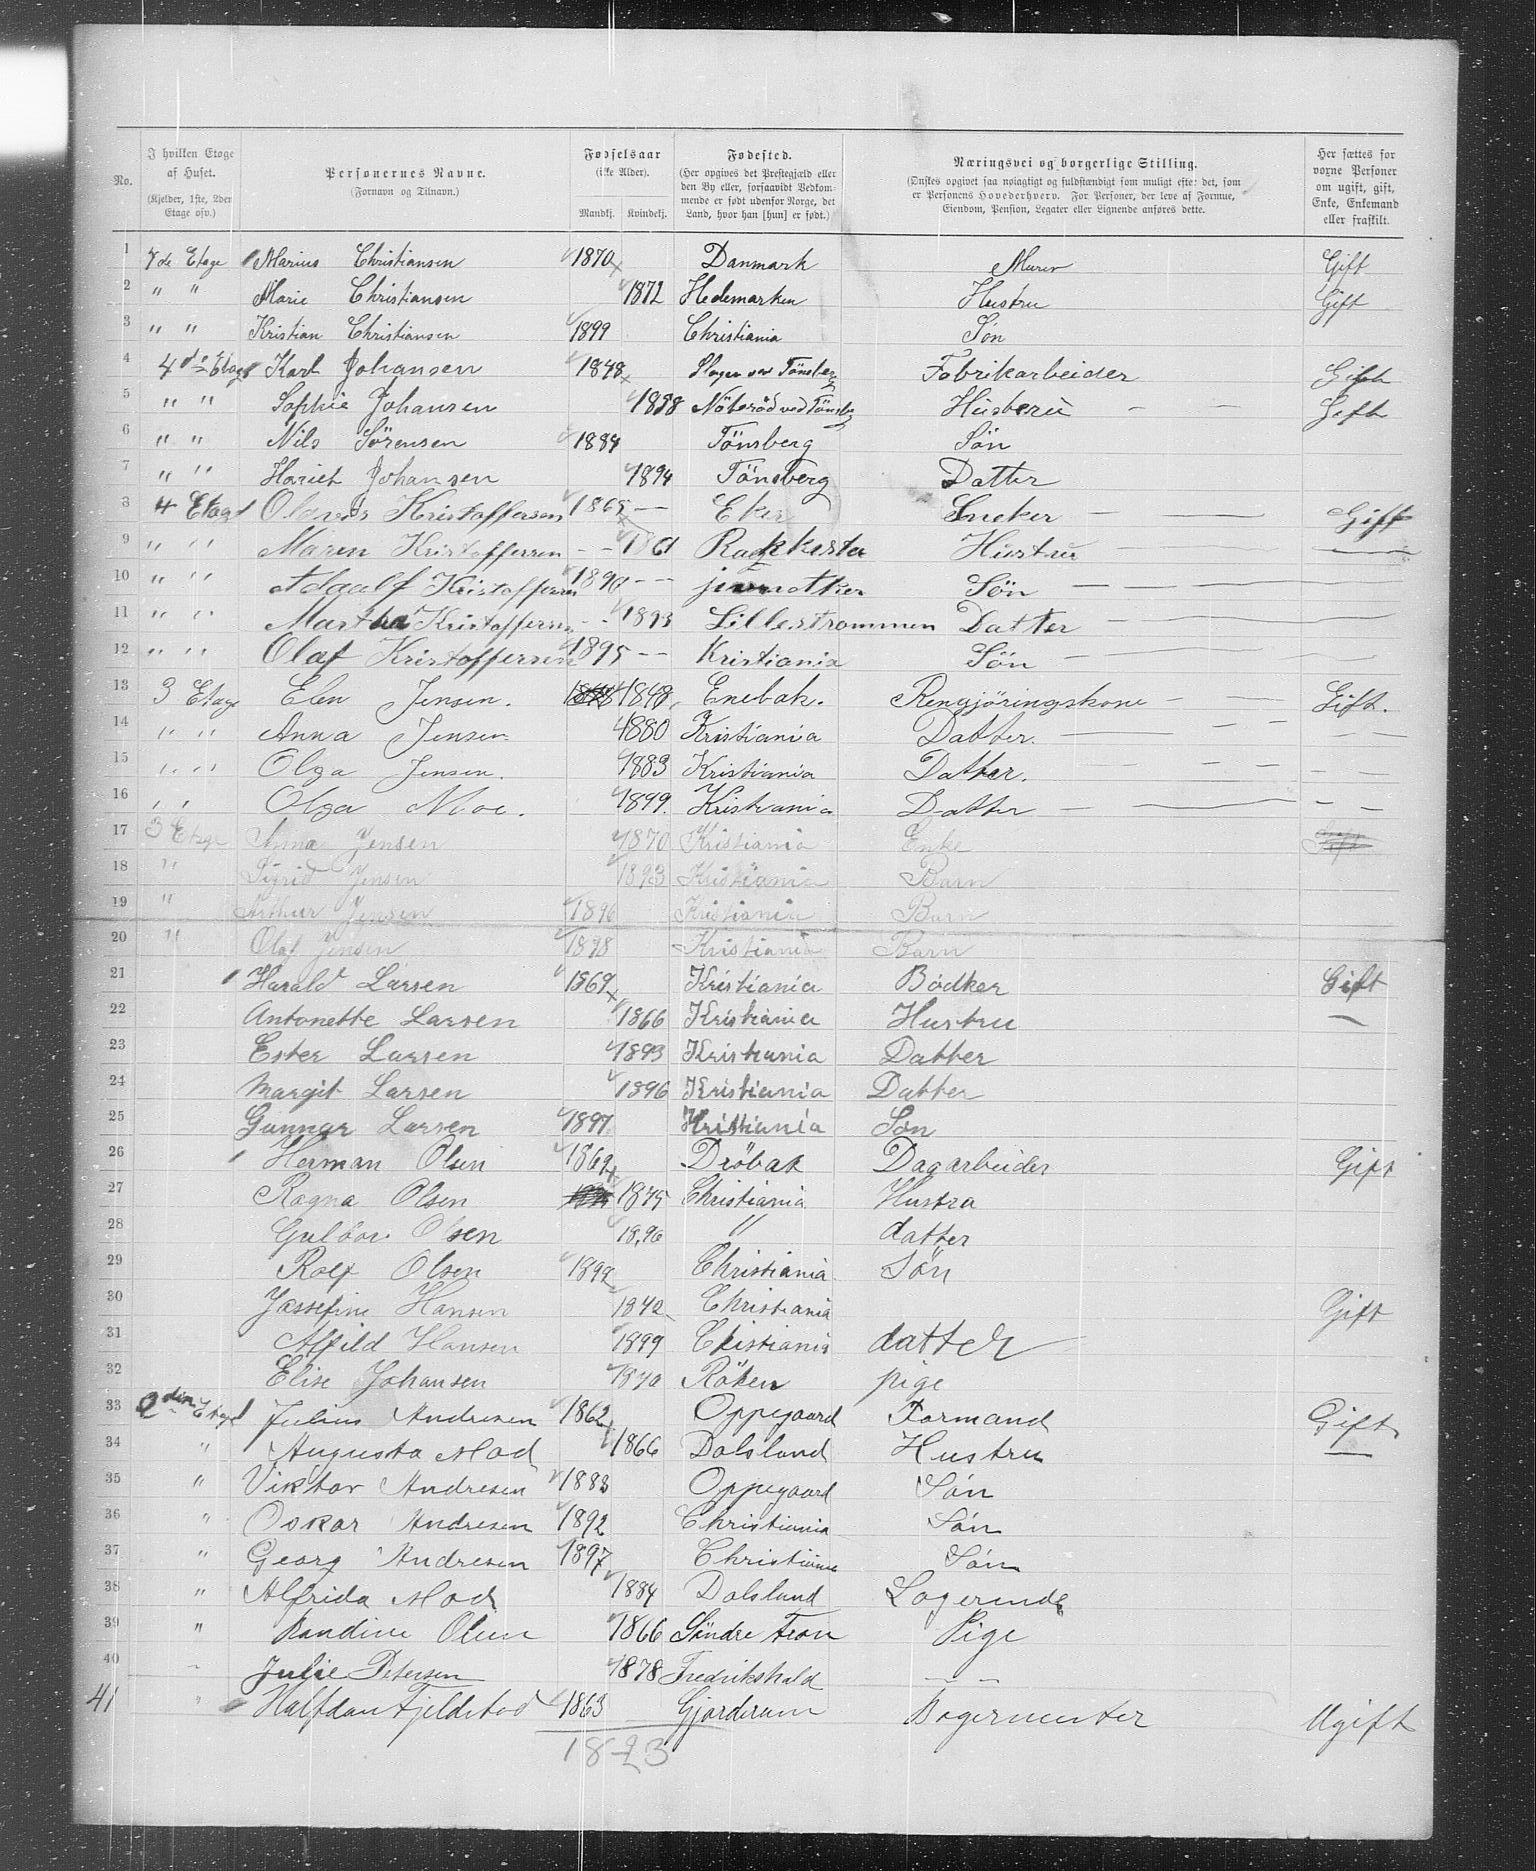 No.
I hvilken Etage af Huset. (Kjelder, 1ste, 2den Etage osv.)
Personernes Navne. (Fornavn og Tilnavn.)
Fødselsaar (ikke Alder). Mandkj. Kvindekj.
Fødested. (Her opgives det Prestegjæld eller den By eller, forsaavidt Vedkommende er født udenfor Norge, det Land, hvor han [hun] er født.)
Næringsvei og borgerlige Stilling. (Ønskes opgivet saa nøiagtigt og fuldstændigt som muligt efter det, som er Personens Hovederhverv. For Personer, der leve af Formue, Eiendom, Pension, Legater eller Lignende anføres dette.)
Her sættes for voxne Personer om ugift, gift, Enke, Enkemand eller fraskilt.
1 4de Etage Marius Christiansen 1870 Danmark Murer Gift
2 " " Marie Christiansen 1872 Hedemarken Hustru Gift
3 " " Kristian Christiansen 1899 Christiania Søn
4 4de Etage Karl Johansen 1848 Slagen ved Tönsberg Fabrikarbeider Gift
5 " " Sophie Johansen 1858 Nöteröd ved Tönsbg Hüsterü — — Gift
6 " " Nils Sörensen 1884 Tönsberg Sön
7 " " Hariet Johansen 1894 Tönsberg Datter
8 4 Etage Olavus Kristoffersen 1865 — Eker Sneker — — Gift
9 " " Maren Kristoffersen - - 1861 Rakkestad Hustru — —
10 " " Adaalf Kristoffersen 1890 - - Sön — —
11 " " Martha Kristoffersen - - 1893 Lillestrommen Datter — —
12 " " Olaf Kristoffersen 1895 — Kristiania Sön — —
13 3 Etage Elen Jensen. 1848 Enebak. Rengjöringskone — — Gift.
14 " " Anna Jensen 1880 Kristiania Datter. — — —
15 " " Olga Jensen. 1883 Kristiania Datter. — — —
16 " " Olga Moe. 1899. Kristiania Datter — — —
17 3 Etage Anna Jensen 1870 Kristiania Enke
18 " Sigrid Jensen 1893 Kristiania Barn
19 " Arthur Jensen 1896 Kristiania Barn
20 " Olaf Jensen 1898 Kristiania Barn
21 Harald Larsen 1869 Kristiania Bödker Gift
22 Antonette Larsen 1866 Kristiania Hustru —
23 Ester Larsen 1893 Kristiania Datter
24 Margit Larsen 1896 Kristiania Datter
25 Gunnar Larsen 1897 Kristiania Søn
26 Herman Olsen 1869 Dröbak Dagarbeider Gift
27 Ragna Olsen 1875 Christiania Hustra
28 Gulbor Olsen 1896 " datter
29 Rolf Olsen 1899 Christiania Sön
30 Jassefine Hansen 1842 Christiania Gift
31 Alfild Hansen 1899 Christiania datter
32 Elise Johansen 1840 Röken pige
33 2den Etage Julius Andresen 1862 Oppegaard Formand Gift
34 " Augusta Mod 1866 Dalsland Hustru —
35 " Viktor Andresen 1883 Oppegaard Sön
36 " Oskar Andresen 1892 Christiania Sön
37 " Georg Andresen 1897 Christiania Sön
38 " Alfrida Mod 1884 Dalsland Logerende
39 " Randine Olsen 1866 Söndre Fron Pige
40 " Julie Petersen 1878 Fredrikshald — —
41 " Halfdan Fjeldstad 1863 Gjerdrum Bagermester Ugift
18-23